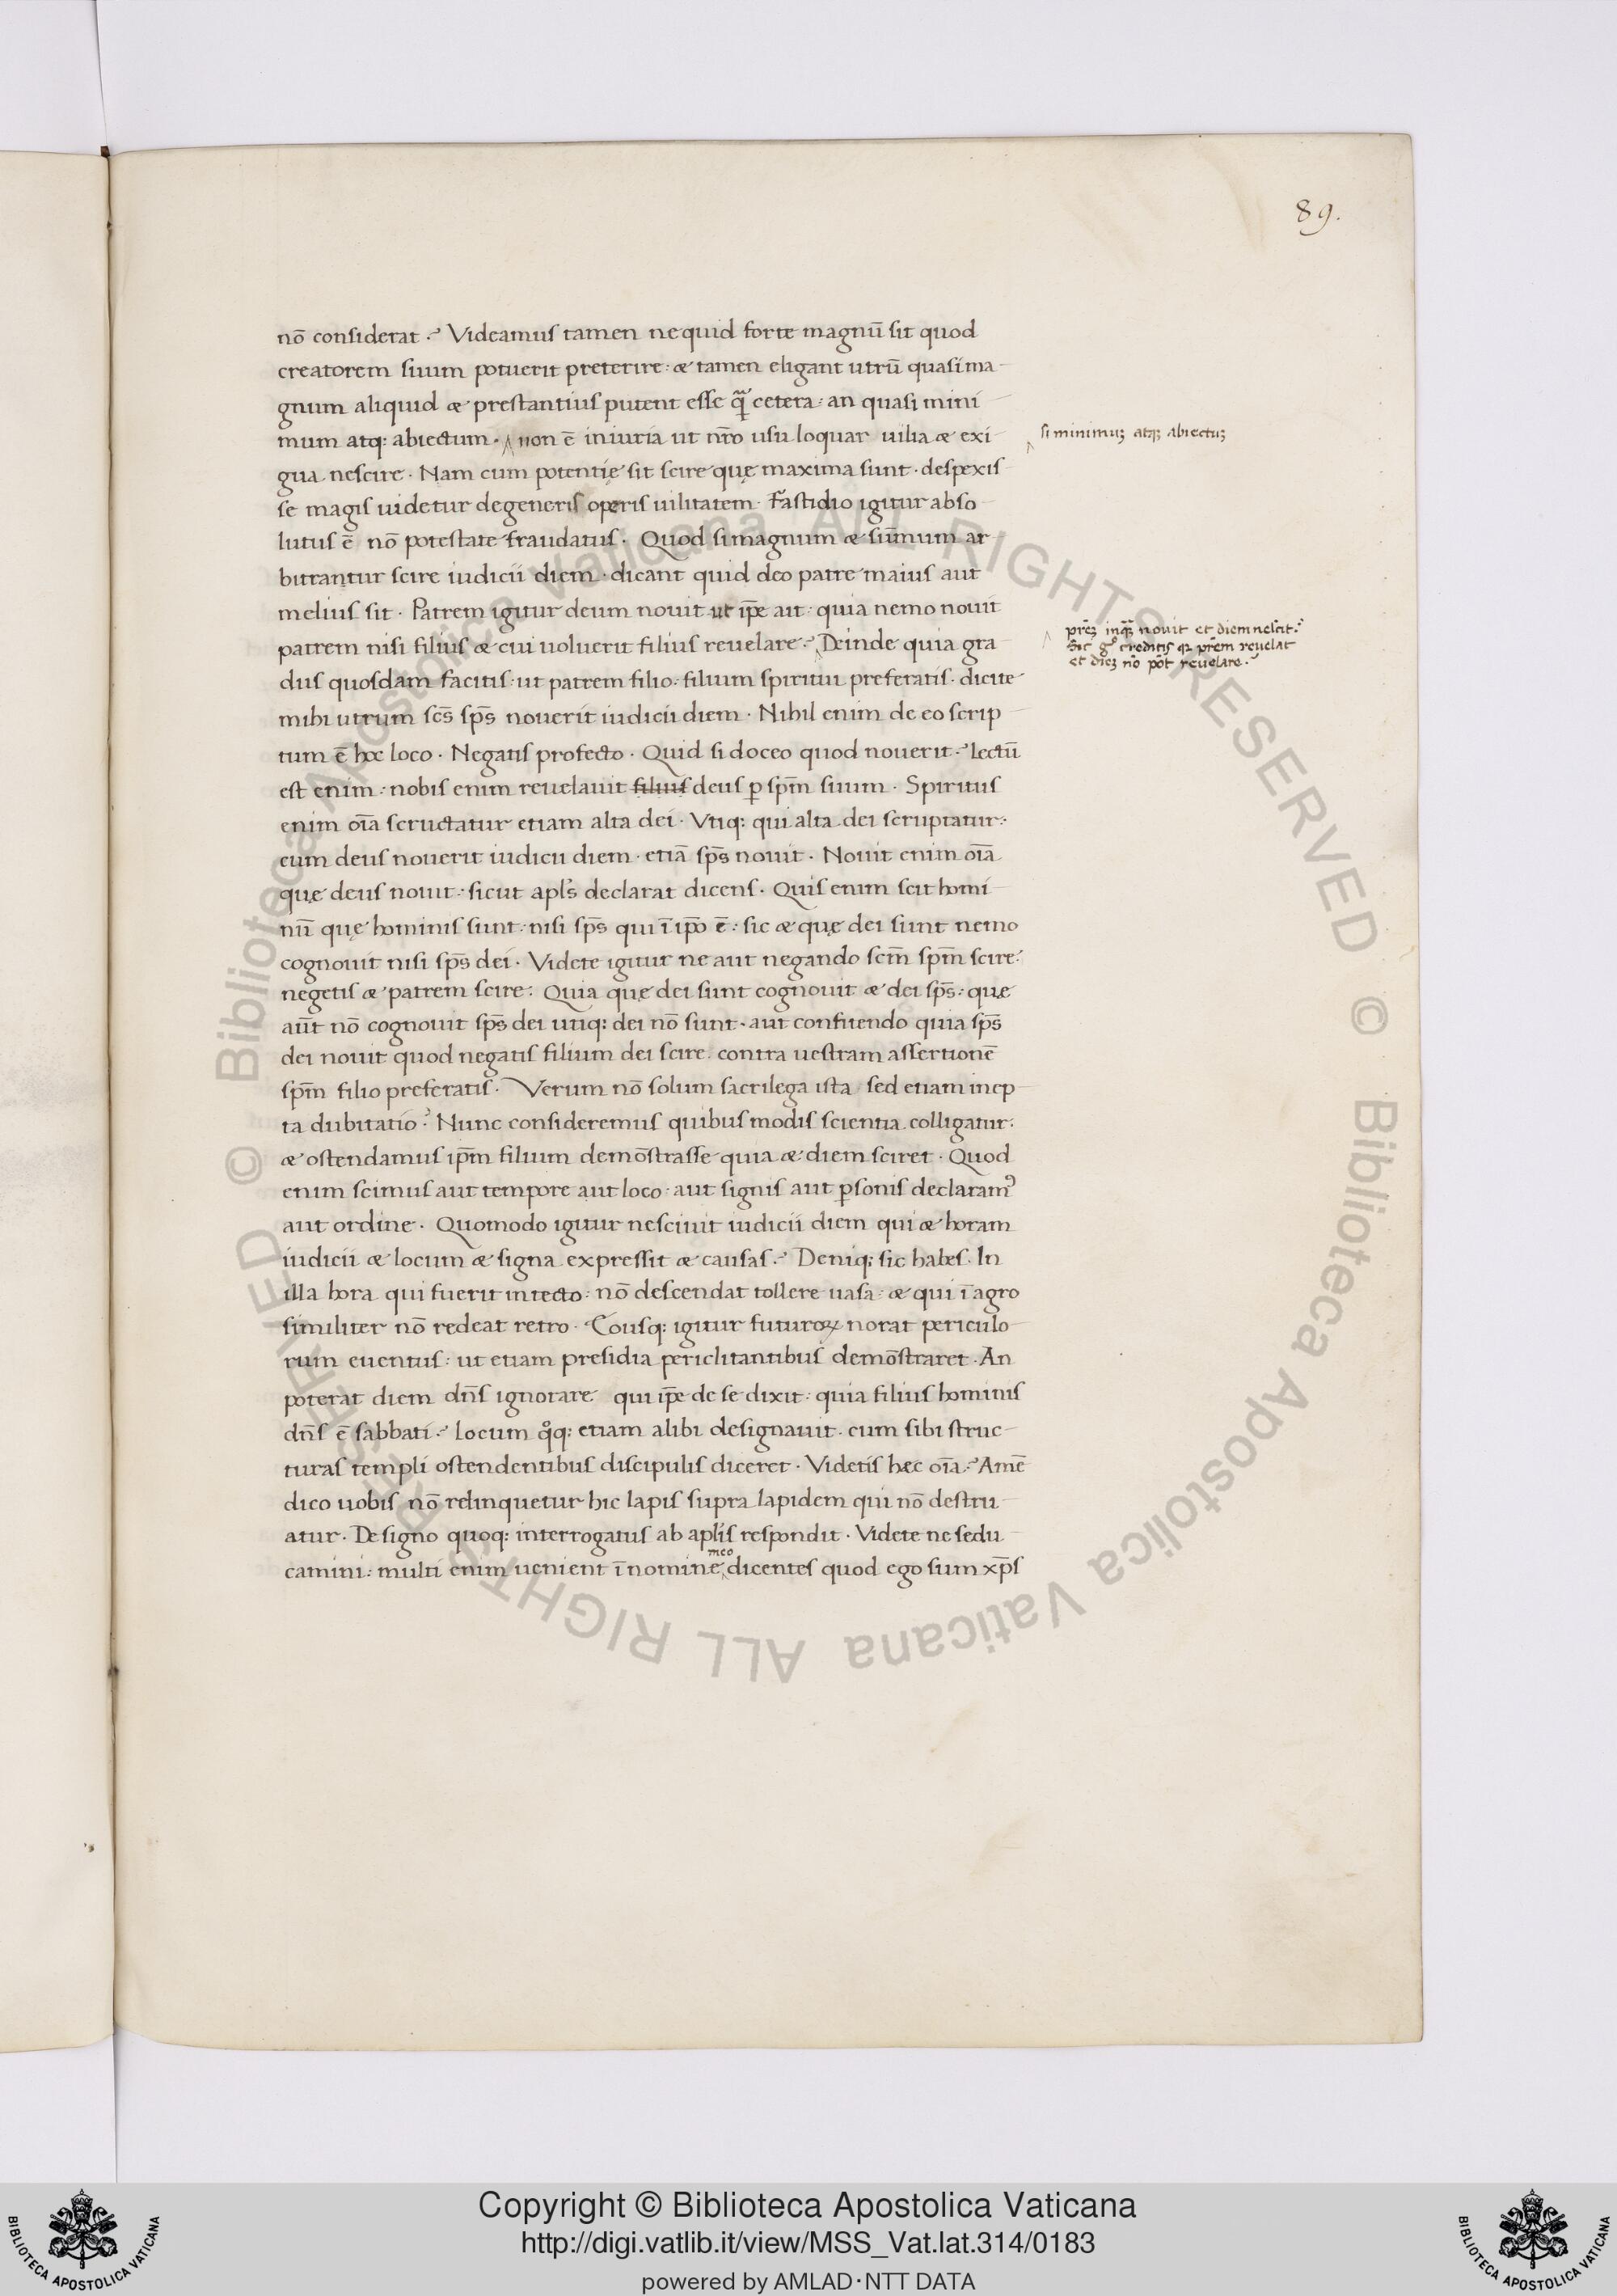 89.
nō considerat .ˀ Videamus tamen ne quid forte magnū sit quod
creatorem suum potuerit preterire : æ tamen eligant utrū quasi ma-
gnum aliquid æ prestantius putent esse q̄ cetera : an quasi mini-
mum atq: abiectum . non ē iniuria ut nr̄o usu loquar uilia æ exi-
si minimuꝫ atqꝫ abiectuꝫ
gua nescire . Nam cum potentię sit scire quę maxima sunt . despexis-
se magis uidetur degeneris operis uilitatem . Fastidio igitur abso-
lutus ē nō potestate fraudatus . Quod si magnum æ sūmum ar-
bitrantur scire iudicii diem . dicant quid deo patre maius aut
melius sit . Patrem igitur deum nouit ut ip̄e ait : quia nemo nouit
patrem nisi filius æ cui uoluerit filius reuelare .ˀ Deinde quia gra
pr̄eꝫ inqꝫ nouit et diem nescit .ˀ
Sic gº creditis qꝫ pr̄em reuelat
et dieꝫ nō pōt reuelare .ˀ
dus quosdam facitis : ut patrem filio : filium spiritui preferatis . dicite
mihi utrum sc̄s sp̄s nouerit iudicii diem . Nihil enim de eo scrip-
tum ē hoc loco . Negatis profecto . Quid si doceo quod nouerit .ˀ Lectū
est enim : nobis enim reuelauit filius deus ꝑ sp̄m suum . Spiritus
enim oīa scructatur etiam alta dei . Vtiq: qui alta dei scruptatur :
cum deus nouerit iudicii diem . etiā sp̄s nouit . Nouit enim oīa
quę deus nouit : sicut apl̄s declarat dicens . Quis enim scit homi-
nū quę hominis sunt : nisi sp̄s qui ī ip̄o ē : sic æ quę dei sunt nemo
cognouit nisi sp̄s dei . Videte igitur ne aut negando sc̄m sp̄m scire :
negetis æ patrem scire : Quia quę dei sunt cognouit æ dei sp̄s : quę
aūt nō cognouit sp̄s dei utiq: dei nō sunt . aut confitendo quia sp̄s
dei nouit quod negatis filium dei scire . contra uestram assertionē
sp̄m filio preferatis . Verum nō solum sacrilega ista sed etiam inep-
ta dubitatio .ˀ Nunc consideremus quibus modis scientia colligatur :
æ ostendamus ip̄m filium demōstrasse quia æ diem sciret . Quod
enim scimus aut tempore aut loco . aut signis aut ꝑsonis declaramꝰ
aut ordine . Quomodo igitur nesciuit iudicii diem qui æ horam
iudicii æ locum æ signa expressit æ causas .ˀ Deniq: sic habes . In
illa hora qui fuerit in tecto : nō descendat tollere uasa : æ qui ī agro
similiter nō redeat retro . Eousq: igitur futuroꝝ norat periculo-
rum euentus : ut etiam presidia periclitantibus demōstraret . An
poterat diem dn̄s ignorare qui ip̄e de se dixit : quia filius hominis
dn̄s ē sabbati .ˀ Locum qºq: etiam alibi designauit . cum sibi struc-
turas templi ostendentibus discipulis diceret . Videtis hæc oīa .ˀ Amē
dico uobis nō relinquetur hic lapis supra lapidem qui nō destru-
atur . De signo quoq: interrogatus ab apl̄is respondit . Videte ne sedu-
camini : multi enim uenient ī nomine meo dicentes quod ego sum xp̄s
© Biblioteca Apostolica Vaticana ALL RIGHTS RESERVED © Biblioteca Apostolica Vaticana ALL RIGHTS RESERVED
BIBLIOTECA APOSTOLICA VATICANA
Copyright © Biblioteca Apostolica Vaticana
http://digi.vatlib.it/view/MSS_Vat.lat.314/0183
powered by AMLAD·NTT DATA
BIBLIOTECA APOSTOLICA VATICANA